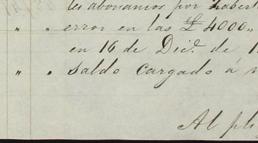 les abonamos por haber
" " error en las £ 4000„
en 16 de Dic.e de 1
" " saldo cargado á
Al pie